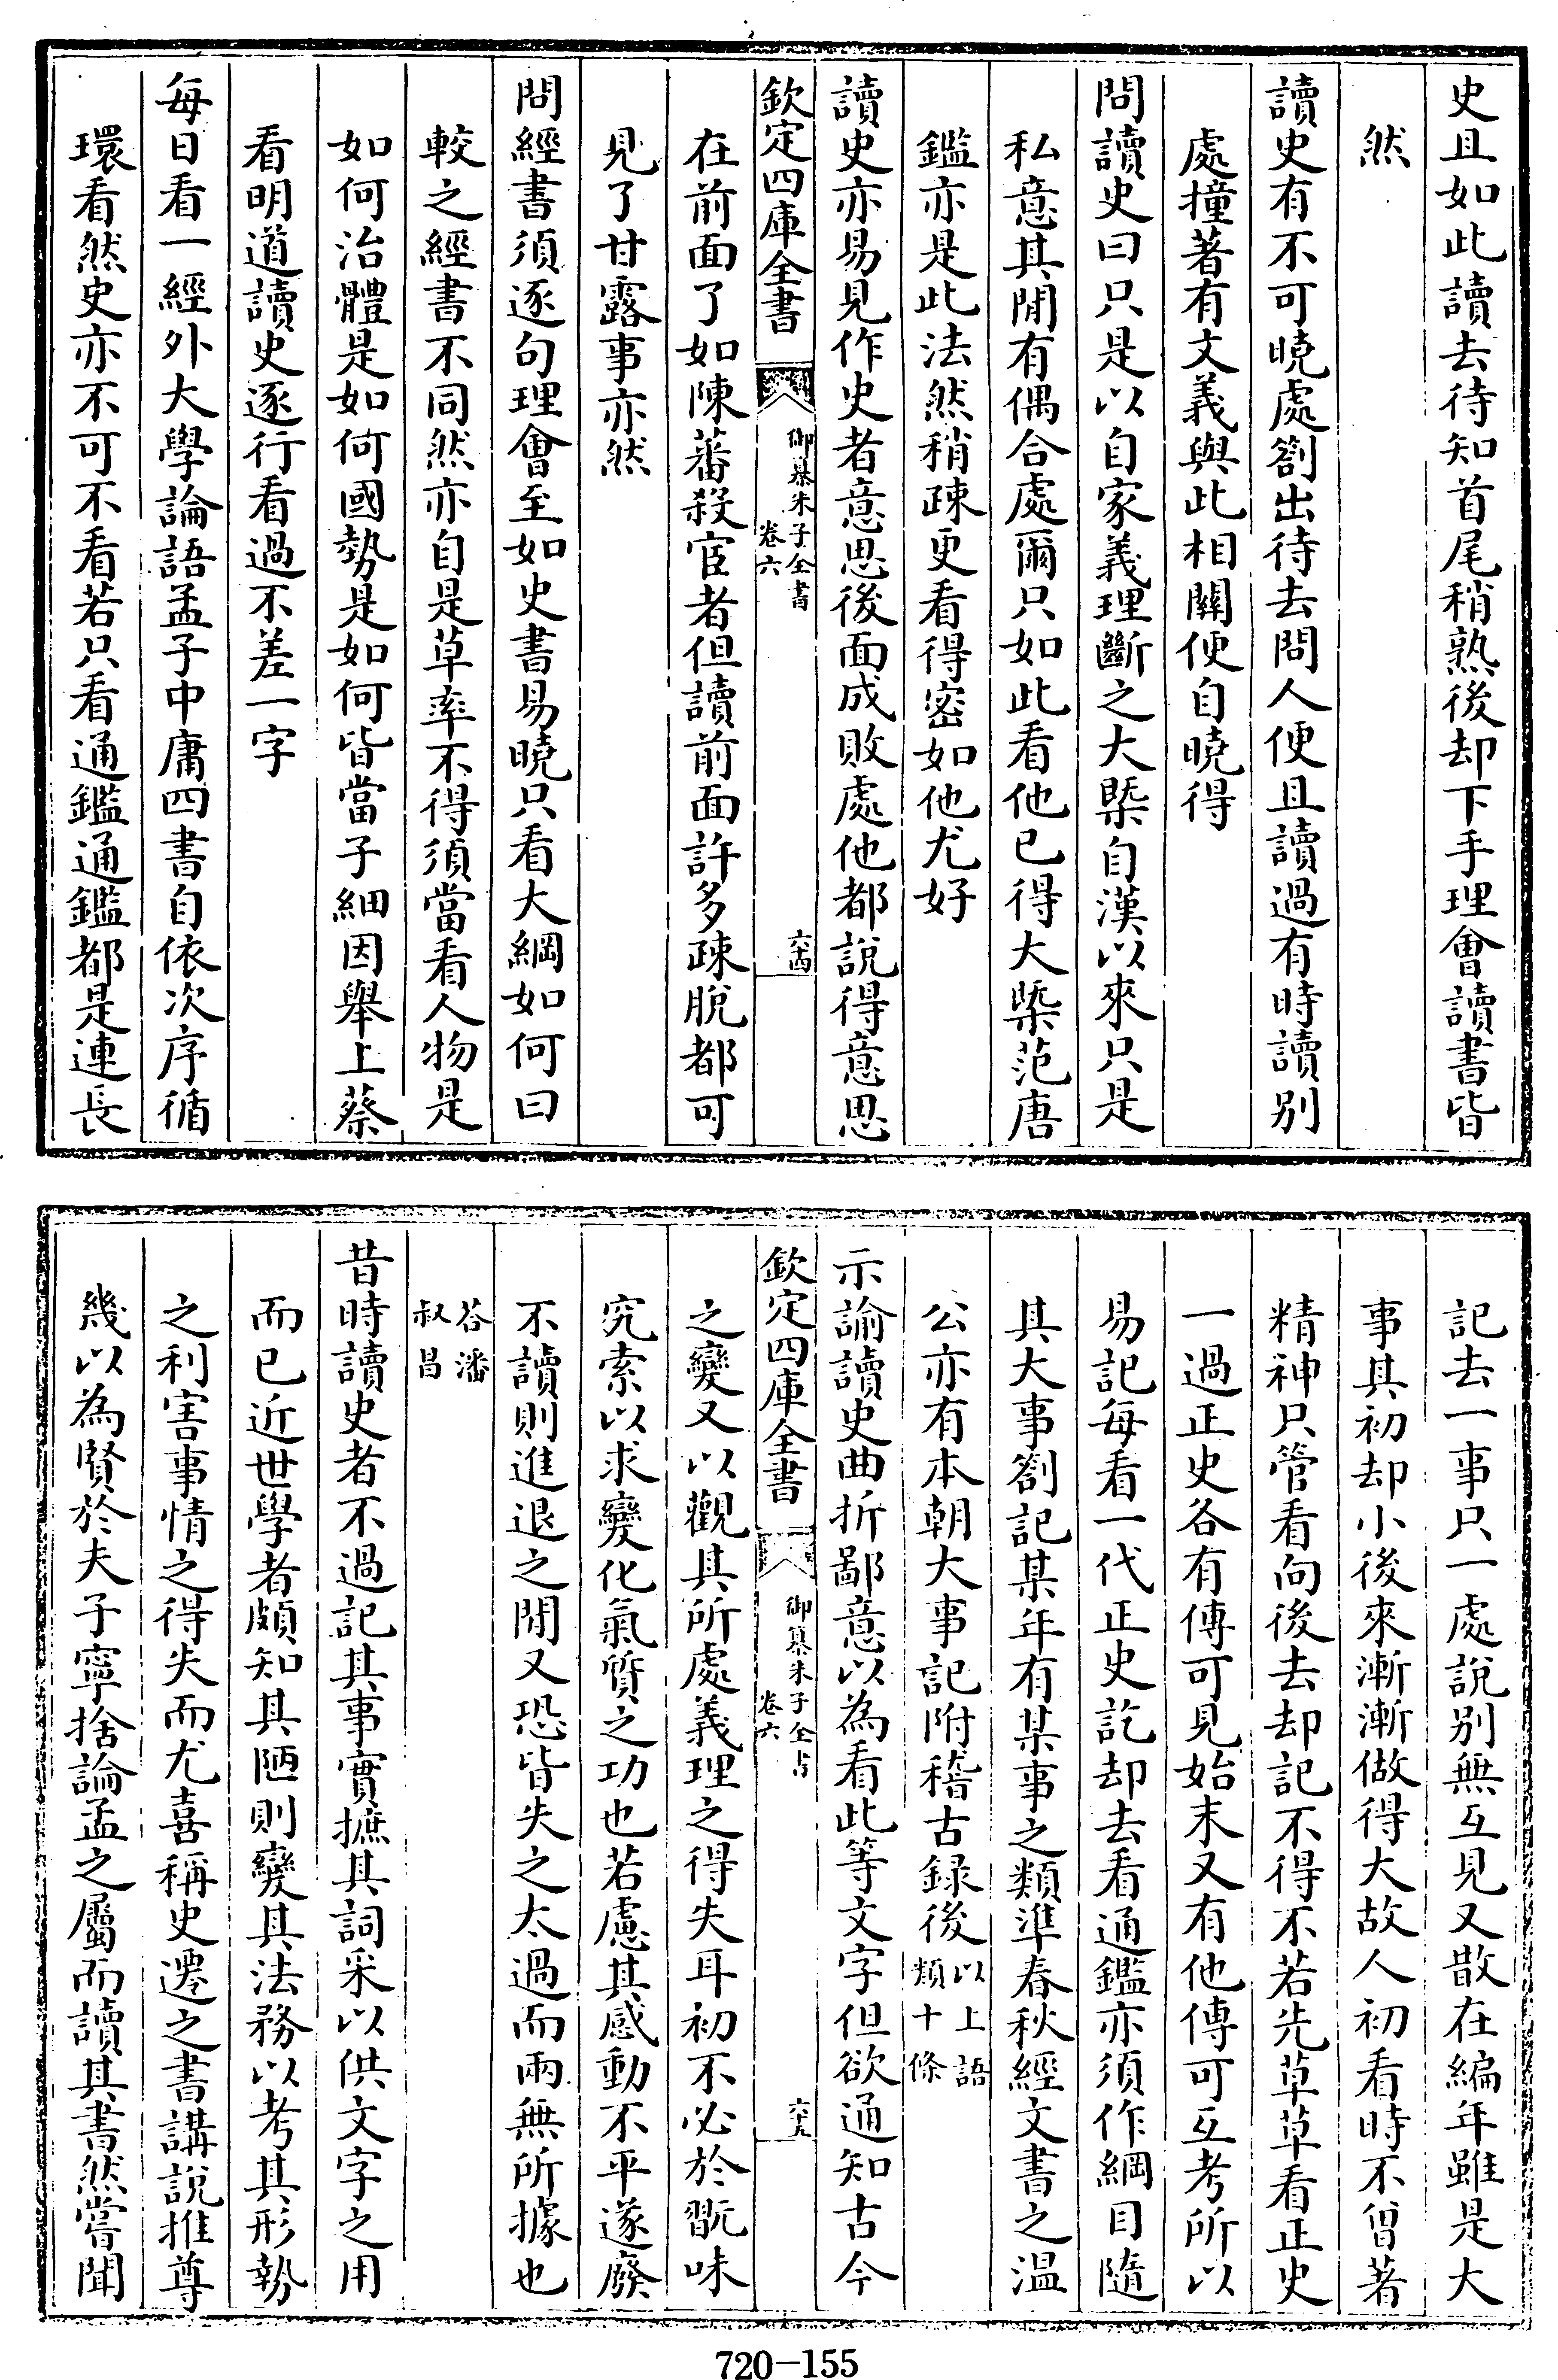 史且如此讀去待知首尾稍熟後却下手理會讀書皆
然
讀史有不可曉處劄出待去問人便且讀過有時讀別
處撞著有文義與此相關便自曉得
問讀史曰只是以自家義理斷之大槩自漢以來只是
私意其閒有偶合處爾只如此看他已得大槩范唐
鑑亦是此法然稍疎更看得密如他尤好
讀史亦易見作史者意思後面成敗處他都說得意思
欽定四庫全書
御纂朱子全書
卷六
六十四
在前面了如陳蕃殺宦者但讀前面許多疎脫都可
見了甘露事亦然
問經書須逐句理會至如史書易曉只看大綱如何曰
較之經書不同然亦自是草率不得須當看人物是
如何治體是如何國勢是如何皆當子細因舉上蔡
看明道讀史逐行看過不差一字
每日看一經外大學論語孟子中庸四書自依次序循
環看然史亦不可不看若只看通鑑通鑑都是連長
記去一事只一處說別無互見又散在編年雖是大
事其初却小後來漸漸做得大故人初看時不曾著
精神只管看向後去却記不得不若先草草看正史
一過正史各有傳可見始末又有他傳可互考所以
易記每看一代正史訖却去看通鑑亦須作綱目隨
其大事劄記某年有某事之類準春秋經文書之溫
公亦有本朝大事記附稽古錄後以上語
類十條
示諭讀史曲折鄙意以為看此等文字但欲通知古今
欽定四庫全書
御纂朱子全書
卷六
六十五
之變又以觀其所處義理之得失耳初不必於翫味
究索以求變化氣質之功也若慮其感動不平遂廢
不讀則進退之閒又恐皆失之太過而兩無所據也
荅潘
叔昌
昔時讀史者不過記其事實摭其詞采以供文字之用
而已近世學者頗知其陋則變其法務以考其形勢
之利害事情之得失而尤喜稱史遷之書講說推尊
幾以為賢於夫子寧捨論孟之屬而讀其書然嘗聞
720-155